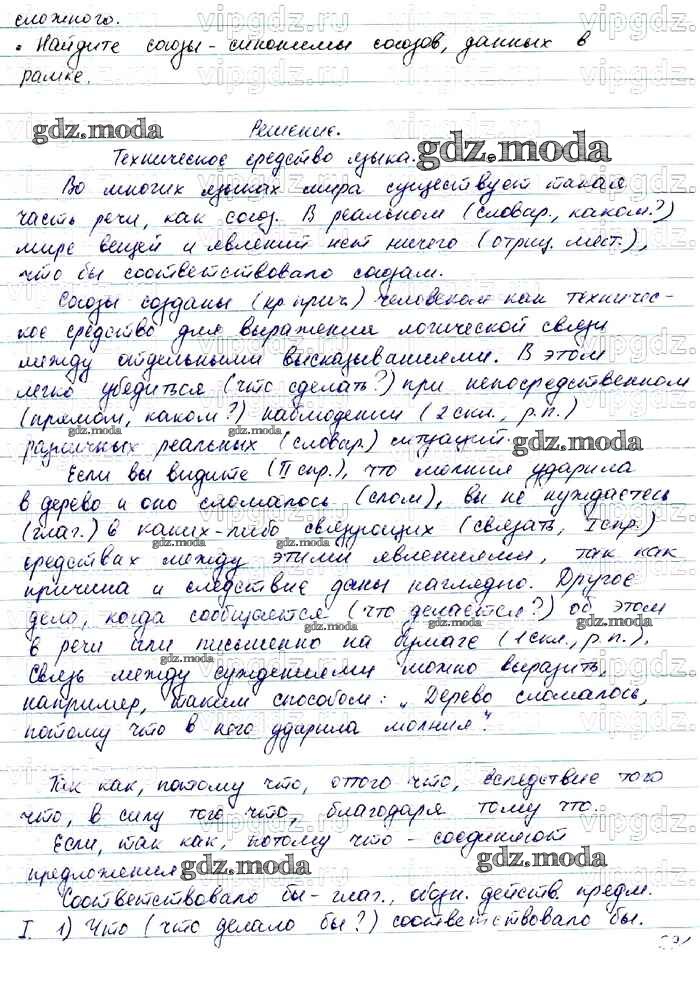 сложного.
• Найдите союзы - синонимы союзов, данных в
рамке.
Решение.
Техническое средство языка.
Во многих языках мира существует такая
часть речи, как союз. В реальном (словар., каком?)
мире вещей и явлений нет ничего (отриц. мест.),
что бы соответствовало союзам.
Союзы созданы (кр прич.) человеком как техничес-
кое средство для выражения логической связи
между отдельными высказываниями. В этом
легко убедиться (что сделать?) при непосредственном
(прямом, каком?) наблюдении (2 скл., р.п.)
различных реальных (словар.) ситуаций.
Если вы видите (II спр.), что молния ударила
в дерево и оно сломалось (слом), вы не нуждаетесь
(глаг.) в каких-либо связующих (связать, I спр.)
средствах между этими явлениями, так как
причина и следствие даны наглядно. Другое
дело, когда сообщается (что делается?) об этом
в речи или письменно на бумаге (1 скл., р.п.).
Связь между суждениями можно выразить,
например, таким способом: „Дерево сломалось,
потому что в него ударила молния".
Так как, потому что, оттого что, вследствие того
что, в силу того что, благодаря тому что.
Если, так как, потому что - соединяют
предложения
Соответствовало бы - глаг., обозн. действ. предм.
I. 1) Что (что делало бы?) соответствовало бы.
gdz.moda
gdz.moda
gdz.moda
gdz.moda
gdz.moda
gdz.moda
gdz.moda
gdz.moda
gdz.moda
gdz.moda
gdz.moda
gdz.moda
gdz.moda
gdz.moda
vipgdz.ru